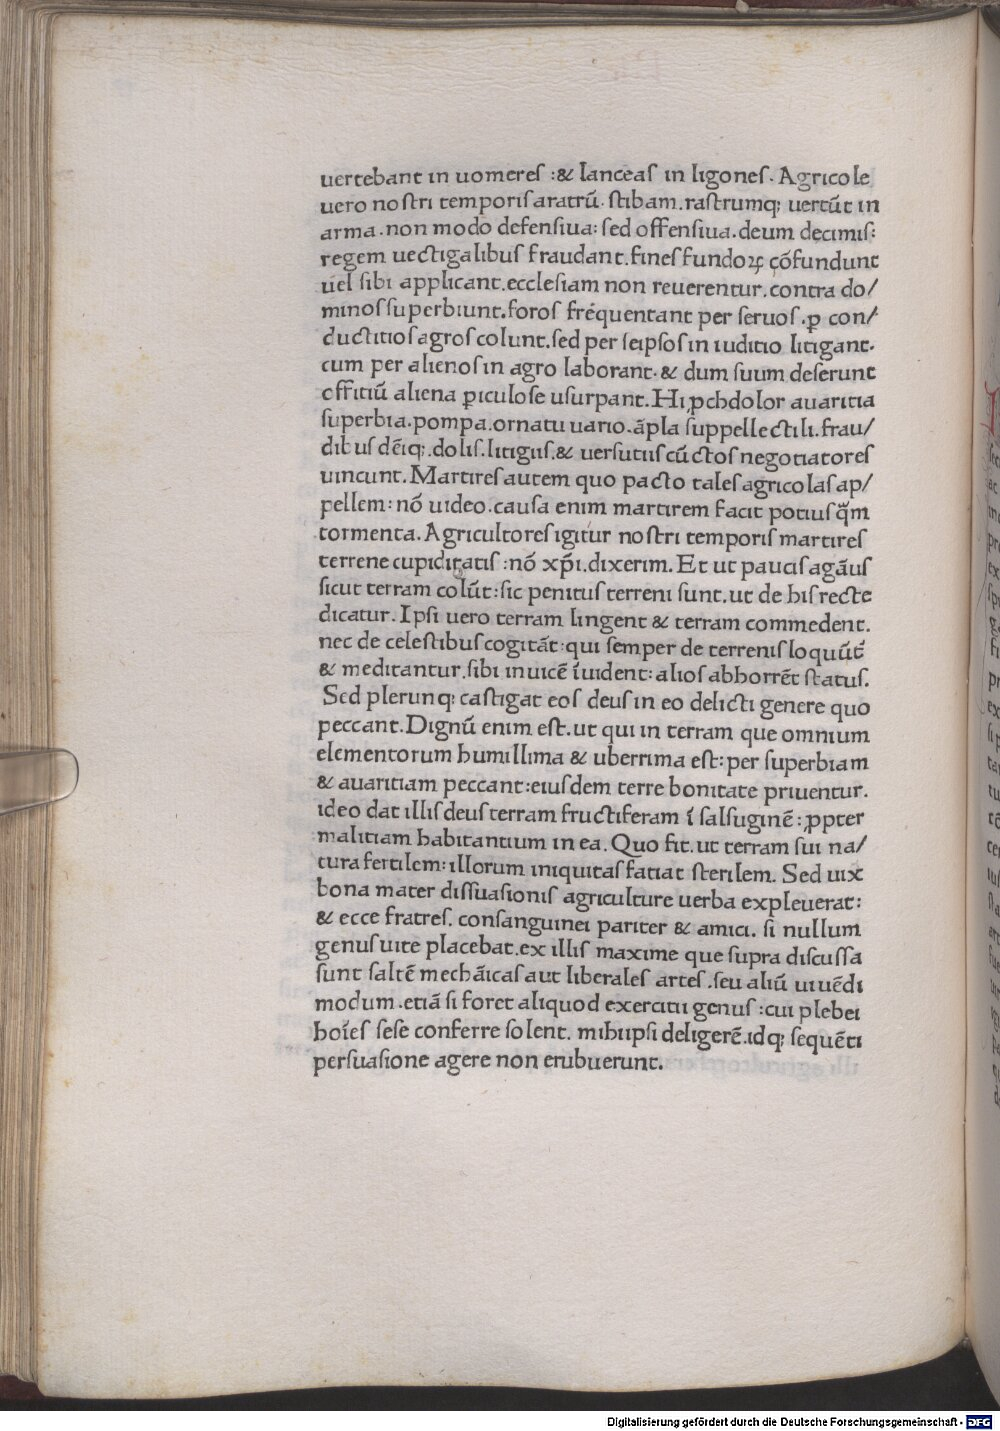 uertebant in uomeres :& lanceas in ligones. Agricole
uero nostri temporis aratrū. stibam. rastrumq; uertūt in
arma. non modo defensiua: sed offensiua. deum decimis:
regem uectigalibus fraudant. fines fundoꝝ cōfundunt
uel sibi applicant. ecclesiam non reuerentur. contra do/
minos superbiunt. foros frequentant per seruos. ꝑ con/
ductitios agros colunt. sed per seipsos in iuditio litigant.
cum per alienos in agro laborant. & dum suum deserunt
offitiū aliena ꝑiculose usurpant. Hi ꝓchdolor auaritia
superbia. pompa. ornatu uario. āpla suppellectili. frau/
dibus dēiq; . dolis. litigiis. & uersutiis cūctos negotiatores
uincunt. Martires autem quo pacto tales agricolas ap/
pellem: nō uideo. causa enim martirem facit potius q̄m
tormenta. Agricultores igitur nostri temporis martires
terrene cupiditatis :nō xp̄i. dixerim. Et ut paucis agāus
sicut terram colūt: sic penitus terreni sunt. ut de his recte
dicatur. Ipsi uero terram lingent & terram commedent.
nec de celestibus cogitāt: qui semper de terrenis loquūt̄
& meditantur. sibi inuicē īuident: alios abhorrēt status.
Sed plerunq; castigat eos deus in eo delicti genere quo
peccant. Dignū enim est. ut qui in terram que omnium
elementorum humillima & uberrima est: per superbiam
& auaritiam peccant: eiusdem terre bonitate priuentur.
ideo dat illis deus terram fructiferam ī salsuginē: ꝓpter
malitiam habitantium in ea. Quo fit. ut terram sui na/
tura fertilem: illorum iniquitas fatiat sterilem. Sed uix
bona mater dissuasionis agriculture uerba expleuerat:
& ecce fratres. consanguinei pariter & amici. si nullum
genus uite placebat. ex illis maxime que supra discussa
sunt saltē mechāicas aut liberales artes. seu aliū uiuēdi
modum. etiā si foret aliquod exercitii genus :cui plebei
hoīes sese conferre solent. mihi ipsi deligerē. idq; sequēti
persuasione agere non erubuerunt.
Digitalisierung gefördert durch die Deutsche Forschungsgemeinschaft - DFG